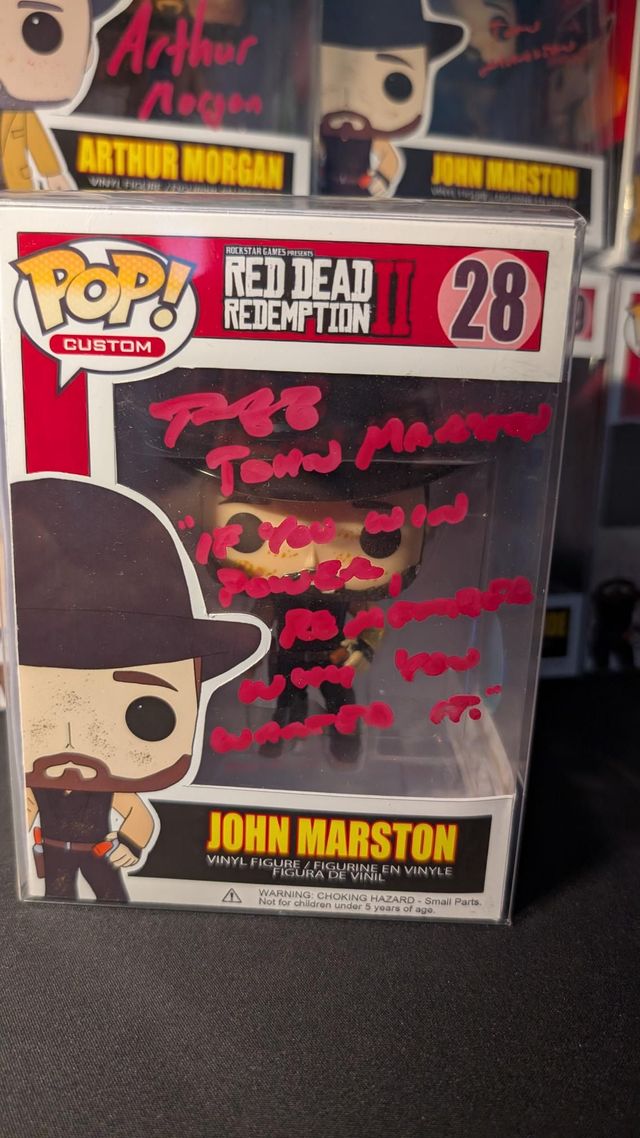 Arthur
Morgan
ARTHUR MORGAN
VINYL FIGURE /
JOHN MARSTON
POP!
CUSTOM
ROCKSTAR GAMES PRESENTS
RED DEAD
REDEMPTION II
28
JOHN MARSTON
"IF YOU WIN
POWER,
REMEMBER
WHY YOU
WANTED IT."
JOHN MARSTON
VINYL FIGURE / FIGURINE EN VINYLE
FIGURA DE VINIL
WARNING: CHOKING HAZARD - Small Parts.
Not for children under 5 years of age.